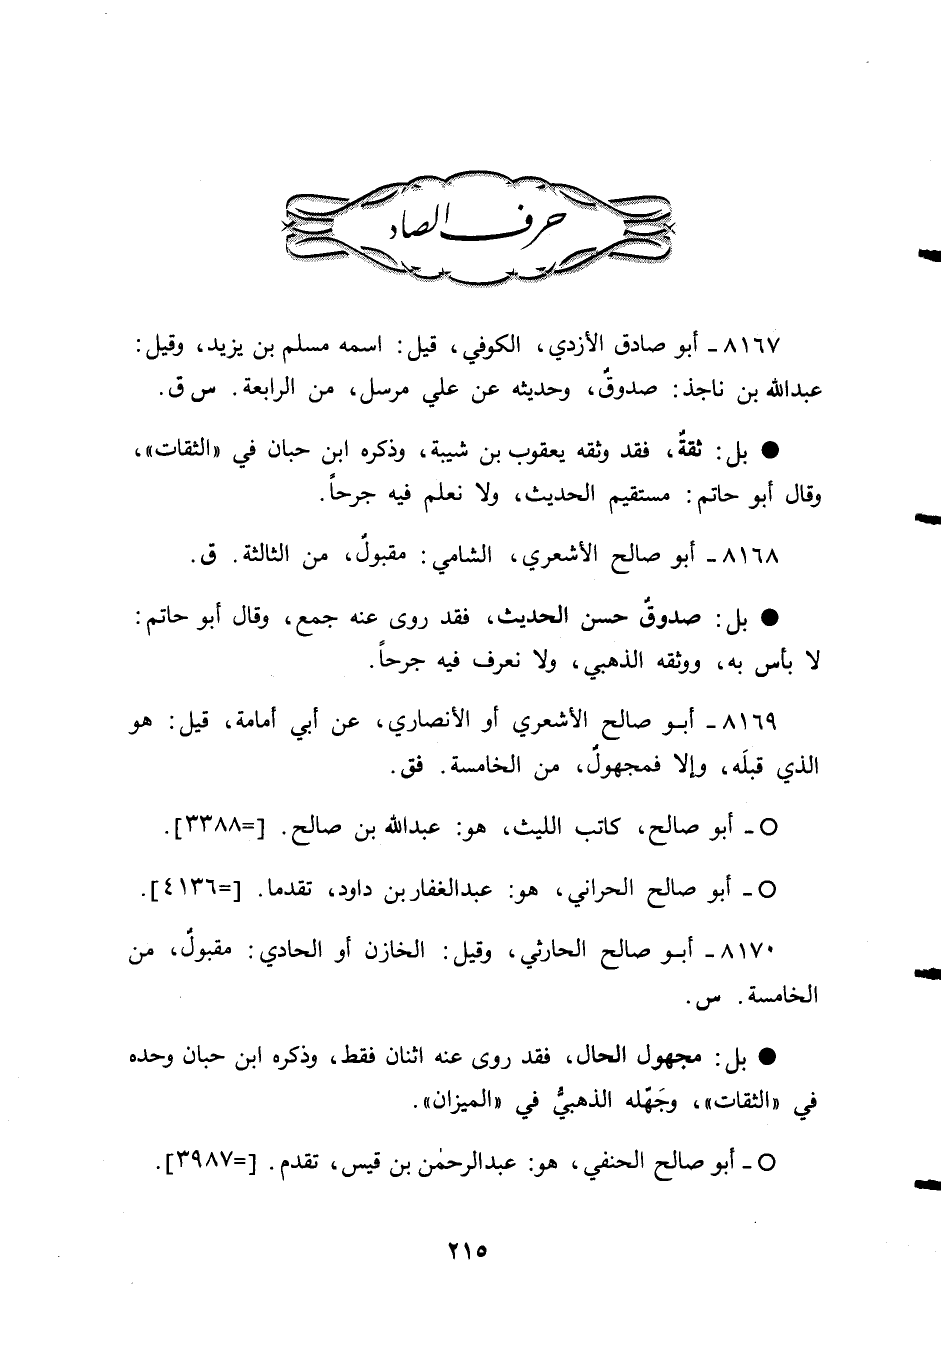 حرف الصاد
٨١٦٧ ـ أبو صادق الأزدي، الكوفي، قيل: اسمه مسلم بن يزيد، وقيل:
عبدالله بن ناجذ: صدوقٌ، وحديثه عن علي مرسل، من الرابعة. س ق.
● بل: ثقةٌ، فقد وثقه يعقوب بن شيبة، وذكره ابن حبان في «الثقات»،
وقال أبو حاتم: مستقيم الحديث، ولا نعلم فيه جرحاً.
٨١٦٨ ـ أبو صالح الأشعري، الشامي: مقبولٌ، من الثالثة. ق.
● بل: صدوقٌ حسن الحديث، فقد روى عنه جمع، وقال أبو حاتم:
لا بأس به، ووثقه الذهبي، ولا نعرف فيه جرحاً.
٨١٦٩ ـ أبـو صالح الأشعري أو الأنصاري، عن أبي أمامة، قيل: هو
الذي قبلَه، وإلا فمجهولٌ، من الخامسة. فق.
○ ـ أبو صالح، كاتب الليث، هو: عبدالله بن صالح. [=٣٣٨٨].
○ ـ أبو صالح الحراني، هو: عبدالغفار بن داود، تقدما. [=٤١٣٦].
٨١٧٠ ـ أبـو صالح الحارثي، وقيل: الخازن أو الحادي: مقبولٌ، من
الخامسة. س.
● بل: مجهول الحال، فقد روى عنه اثنان فقط، وذكره ابن حبان وحده
في «الثقات»، وجَهّله الذهبيُّ في «الميزان».
○ ـ أبو صالح الحنفي، هو: عبدالرحمٰن بن قيس، تقدم. [=٣٩٨٧].
٢١٥